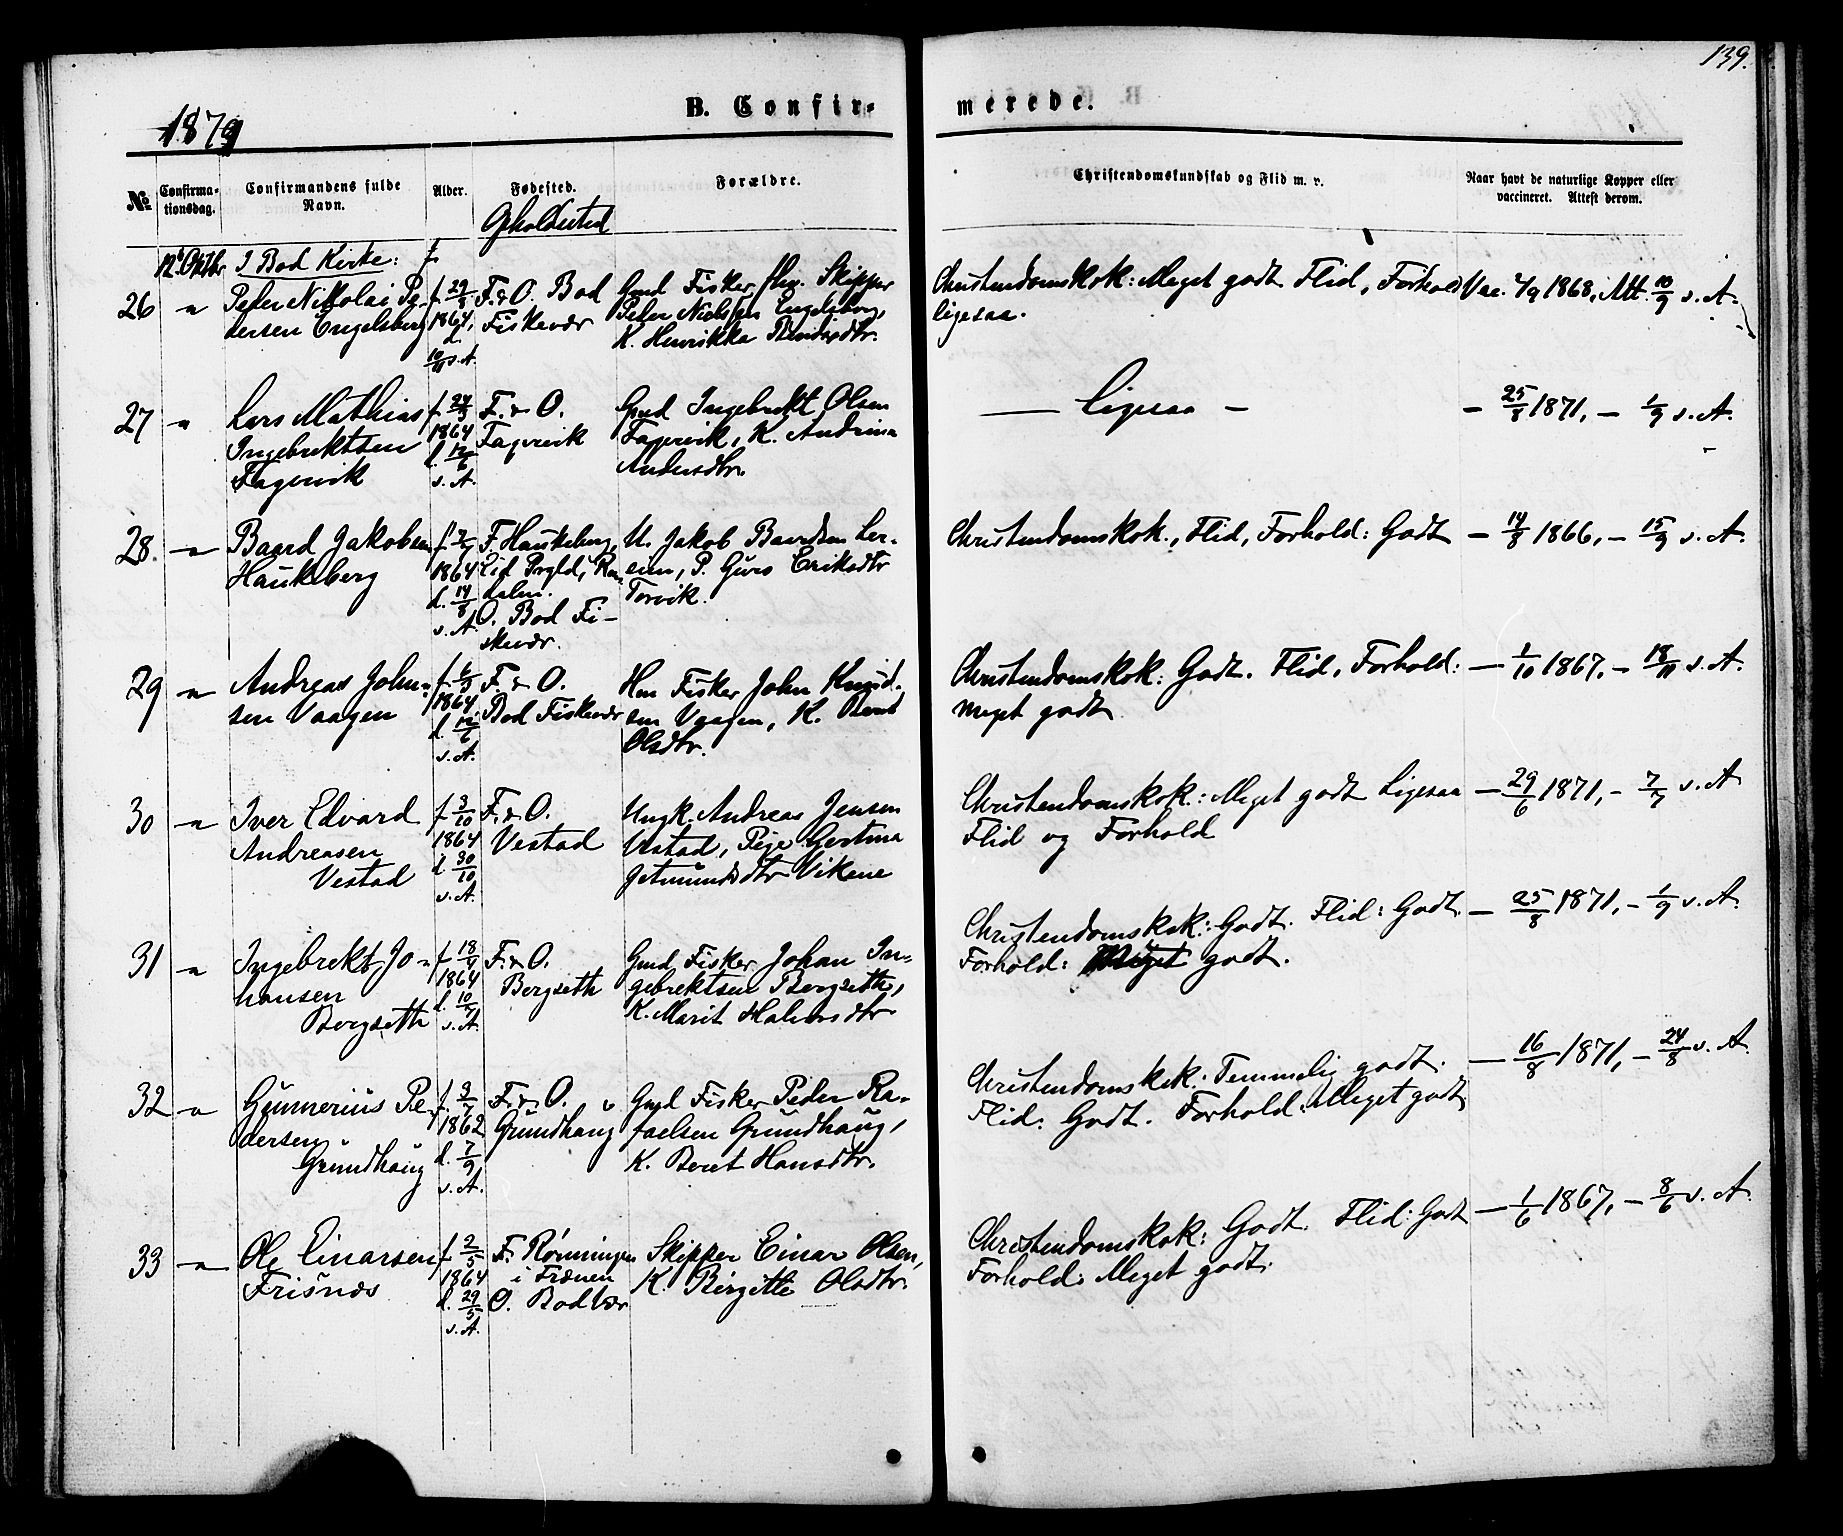 139.
1879
B. Confirmerede.
№
Confirmationsdag.
Confirmandens fulde Navn.
Alder.
Fødested.
Opholdssted
Forældre.
Christendomskundskab og Flid m. v.
Naar havt de naturlige Kopper eller vaccineret. Attest derom.
12t Oktbr
I Bod Kirke:
26 "
Peter Nikolai Pe-
dersen Engelsberg
f. 29/8
1864,
d.
10/11 s. A.
F. & O. Bod
Fiskevær
Gmd Fisker, Skipper
Peder Nielsen Engelsberg,
K. Henrikka
Christendomskdk: Meget godt Flid, Forhold
ligesaa.
Vac. 4/9 1868, Att. 10/9 s. A.
27 "
Lars Mathias
Ingebrektsen
Fagervik
f. 24/3
1864
d. 12/6
s. A.
F. & O.
Fagervik
Gmd Ingebrekt Olsen
Fagervik, K. Andrina
Andersdtr.
— Ligesaa —
— 25/8 1871, — 1/9 s. A.
28. "
Baard Jakobsen
Haukeberg
1864
d. 14/8
s. A.
F. Haukeberg,
Lid Prgld, Rom-
dalen.
O. Bod Fi-
skevær.
U. Jakob Baardsen Ler-
sen, P. Guro Eriksdtr
Torvik.
Christendomskdk., Flid, Forhold: Godt
— 14/8 1866, — 15/9 s. A.
29 "
Andreas John-
sen Vaagen
f. 6/3
1864
d. 12/6
s. A.
F. & O.
Bod Fiskevær
Hm Fisker John Knud-
sen Vaagen, K. Berit
Olsdtr.
Christendomskdk: Godt. Flid, Forhold:
Meget godt
— 1/10 1867, — 18/11 s. A.
30 "
Iver Edvard
Andreasen
Vestad
f. 3/10
1864
d. 30/10
s. A.
F. & O.
Vestad
Ungk. Andreas Jensen
Vestad, Pige Gertina
Getmundsdtr Vikene
Christendomskdk.: Meget godt Ligesaa
Flid og Forhold
— 29/6 1871, — 7/7 s. A
31 "
Ingebrekt Jo-
hansen
Bergseth
f. 18/4
1864
d. 10/7
s. A.
F. & O.
Bergseth
Gmd Fisker Johan In-
gebrektsen Bergseth,
K. Marit Halvorsdtr
Christendomskdk: Godt. Flid: Godt.
Forhold: Meget godt.
— 25/8 1871, — 1/9 s. A.
32 "
Gunnerius Pe-
dersen
Grundhaug
f. 3/7
1862
d. 7/9
s. A.
F. & O.
Grundhaug
Gmd Fisker Peder Ra-
faelsen Grundhaug,
K. Beret Hansdtr.
Christendomskdk: Temmelig godt.
Flid: Godt. Forhold: Meget godt
— 16/8 1871, — 24/8 s. A.
33 "
Ole Einarsen
Frisnæs
f. 2/5
1864
d. 29/5
s. A.
F. Rønningen
i Frænen
O. Bod Vær
Skipper Einar Olsen,
K. Birgitte Olsdtr.
Christendomskdk: Godt. Flid: Godt
Forhold: Meget godt.
— 1/6 1867, — 8/6 s. A.